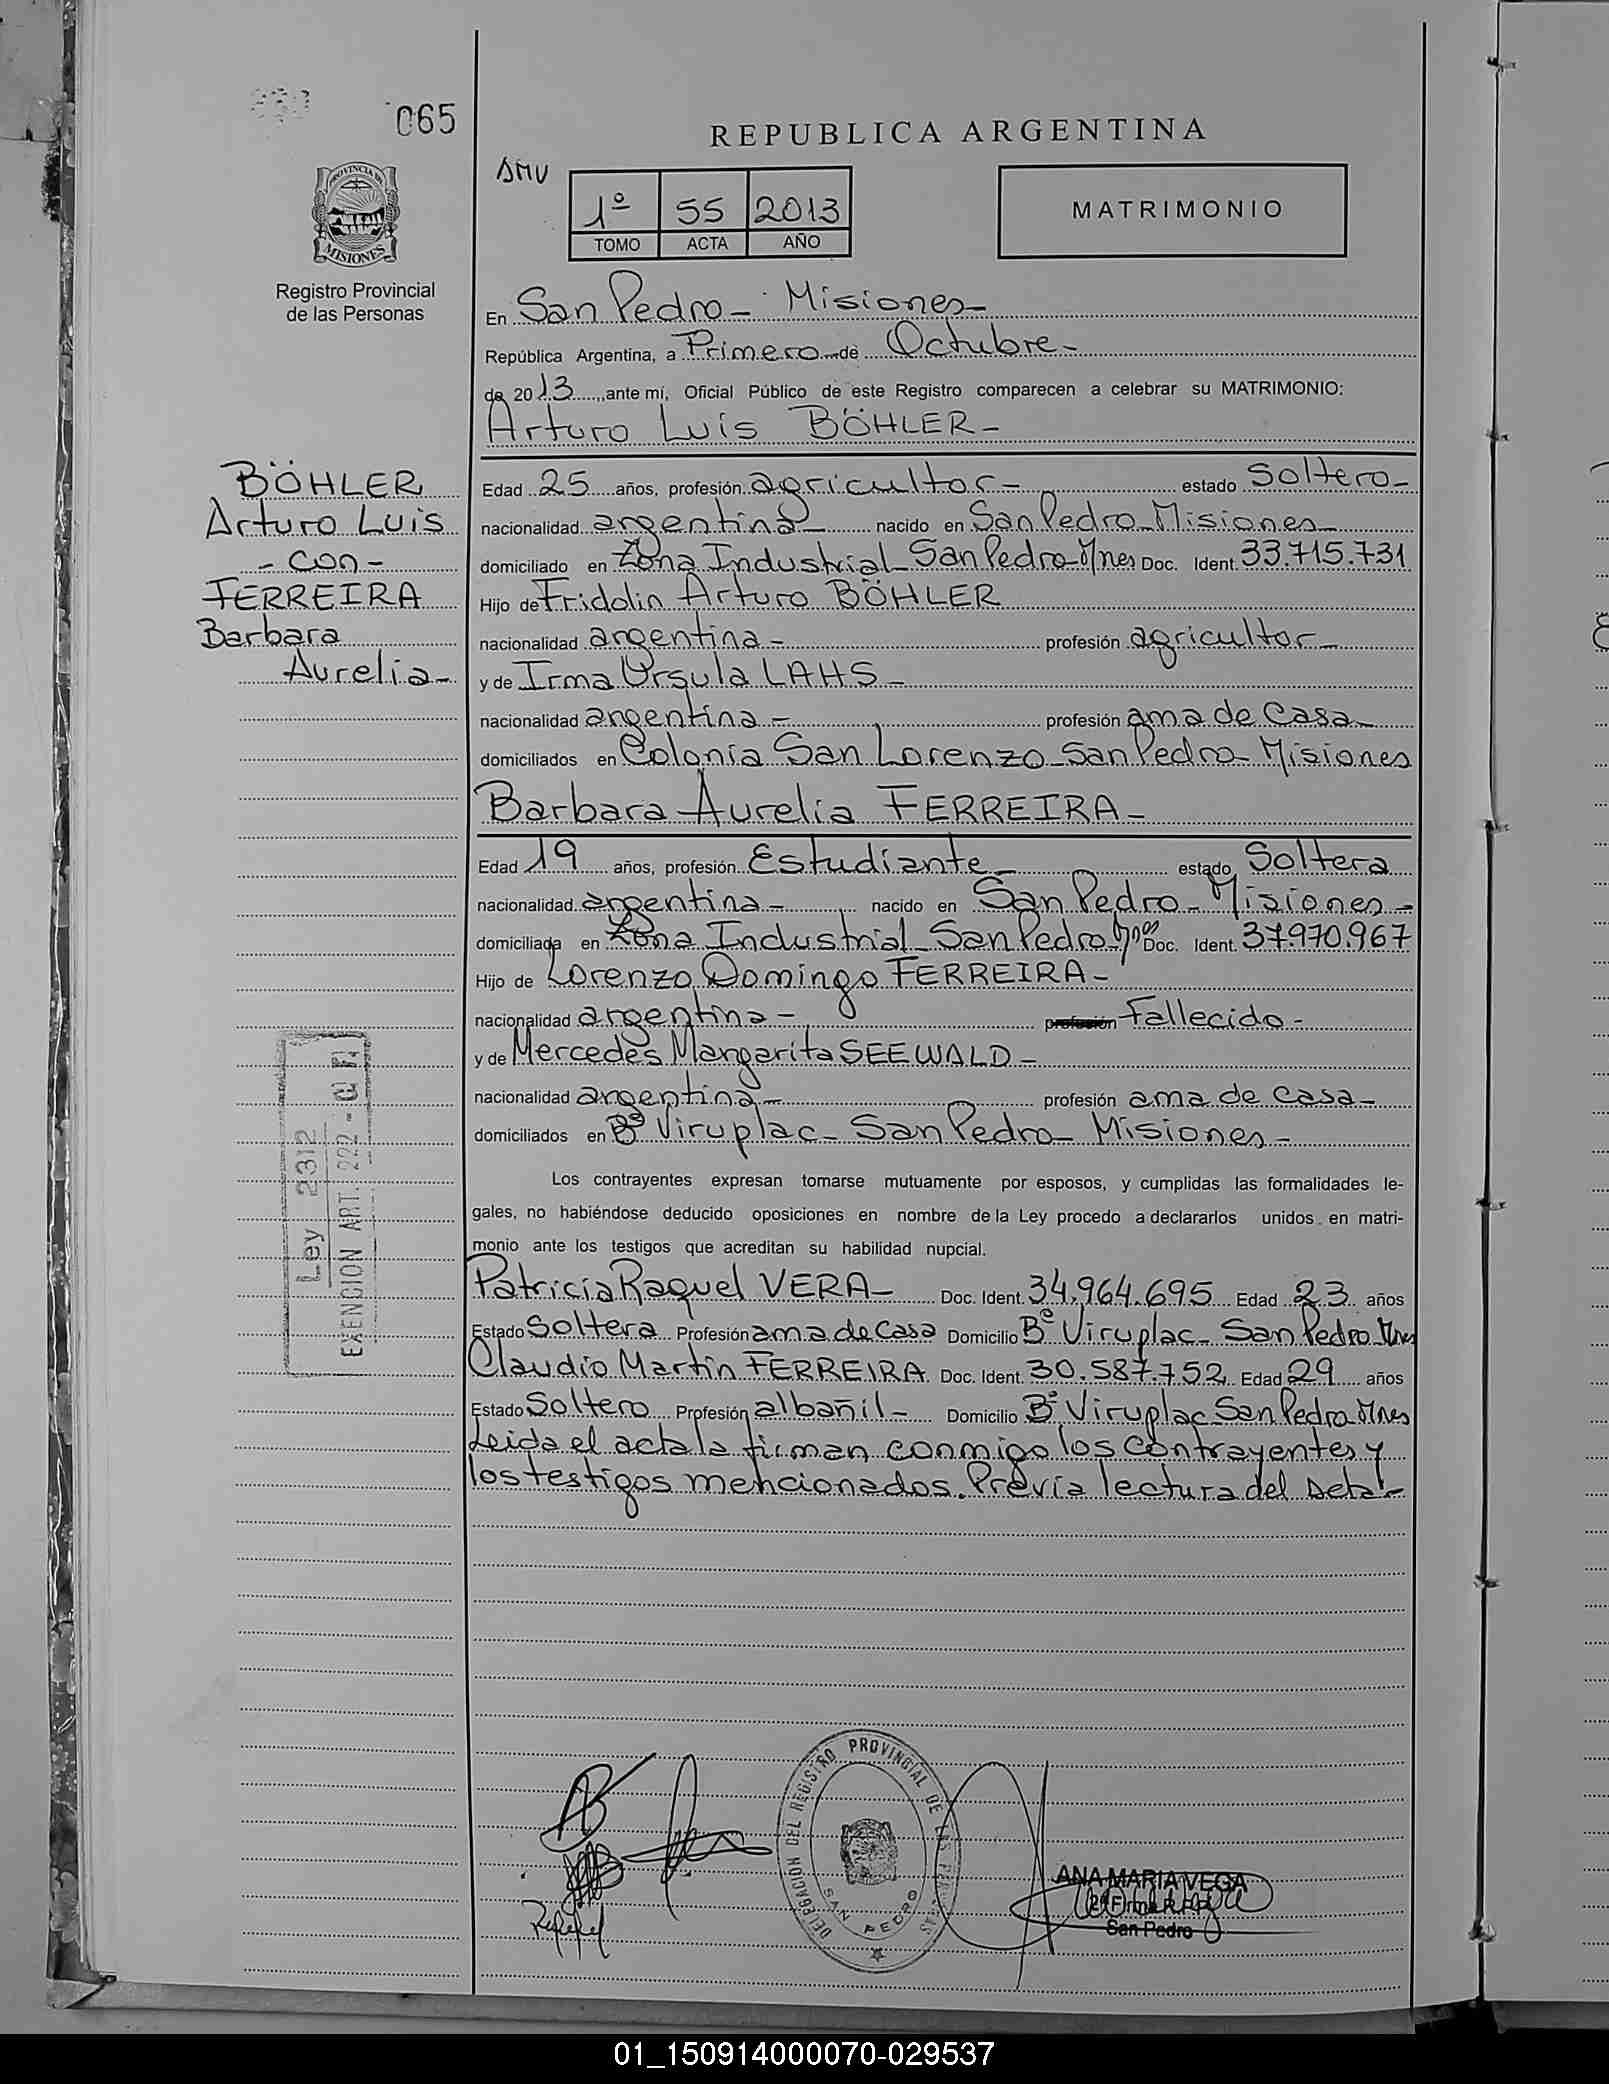 065
REPUBLICA ARGENTINA
1º 55 2013
TOMO ACTA AÑO
MATRIMONIO
PROVINCIA DE
MISIONES
Registro Provincial
de las Personas
En San Pedro - Misiones -
República Argentina, a Primero de Octubre -
de 2013, ante mí, Oficial Público de este Registro comparecen a celebrar su MATRIMONIO:
Arturo Luis BÖHLER -
BÖHLER
Arturo Luis
- con -
FERREIRA
Barbara
Aurelia -
Edad 25 años, profesión agricultor - estado Soltero -
nacionalidad argentina nacido en San Pedro - Misiones -
domiciliado en Zona Industrial - San Pedro - Mnes Doc. Ident. 33.715.731
Hijo de Fridolin Arturo BÖHLER
nacionalidad argentina - profesión agricultor -
y de Irma Ursula LAHS -
nacionalidad argentina - profesión ama de casa -
domiciliados en Colonia San Lorenzo - San Pedro - Misiones
Barbara Aurelia FERREIRA -
Edad 19 años, profesión Estudiante - estado Soltera
nacionalidad argentina - nacido en San Pedro - Misiones -
domiciliada en Zona Industrial - San Pedro Doc. Ident. 37.970.967
Hijo de Lorenzo Domingo FERREIRA -
nacionalidad argentina - profesión Fallecido -
y de Mercedes Margarita SEEWALD -
nacionalidad argentina - profesión ama de casa -
domiciliados en Bº Viruplac - San Pedro - Misiones -
Ley 2312
EXENCION ART. 222 -
Los contrayentes expresan tomarse mutuamente por esposos, y cumplidas las formalidades le-
gales, no habiéndose deducido oposiciones en nombre de la Ley procedo a declararlos unidos en matri-
monio ante los testigos que acreditan su habilidad nupcial.
Patricia Raquel VERA - Doc. Ident. 34.964.695 Edad 23 años
Estado Soltera Profesión ama de casa Domicilio Bº Viruplac - San Pedro Mnes
Claudio Martin FERREIRA Doc. Ident. 30.587.752 Edad 29 años
Estado Soltero Profesión albañil - Domicilio Bº Viruplac San Pedro Mnes
Leida el acta la firman conmigo los contrayentes y
los testigos mencionados. Previa lectura del acta! -
DELEGACION DEL REGISTRO PROVINCIAL DE LAS PERSONAS
SAN PEDRO
ANA MARIA VEGA
San Pedro
01_150914000070-029537